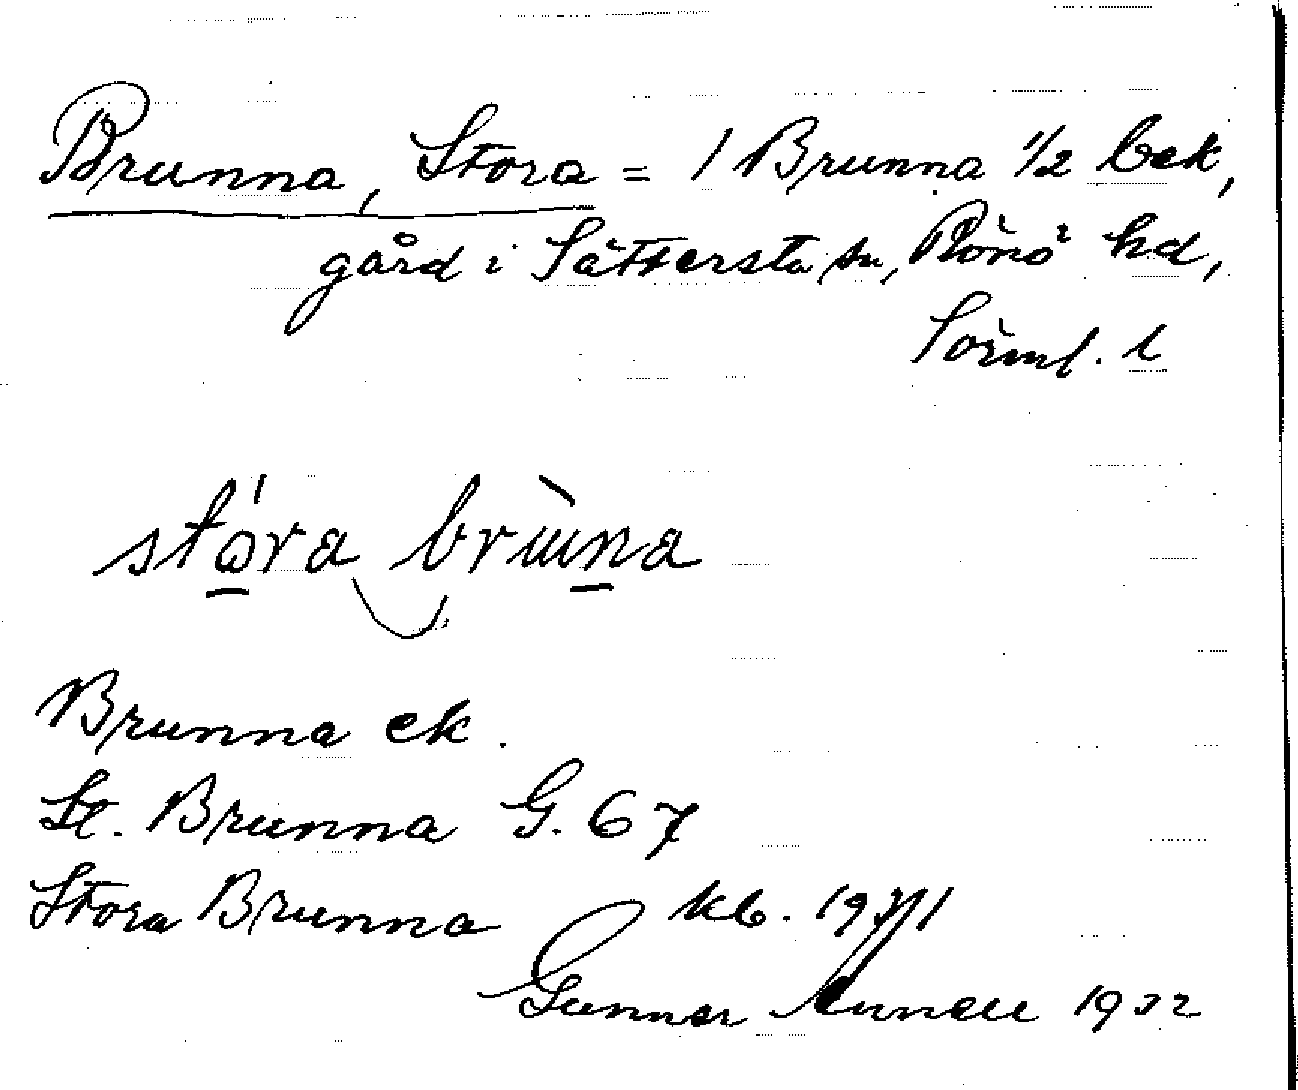 Brunna, Stora = 1 Brunna 1/2 bek,
gård i Sättersta sn, Rönö hd,
Sörml. l
stóra brùna
Brunna ek.
St. Brunna G. 67
Stora Brunna kb. 1931
Gunnar Linnell 1932